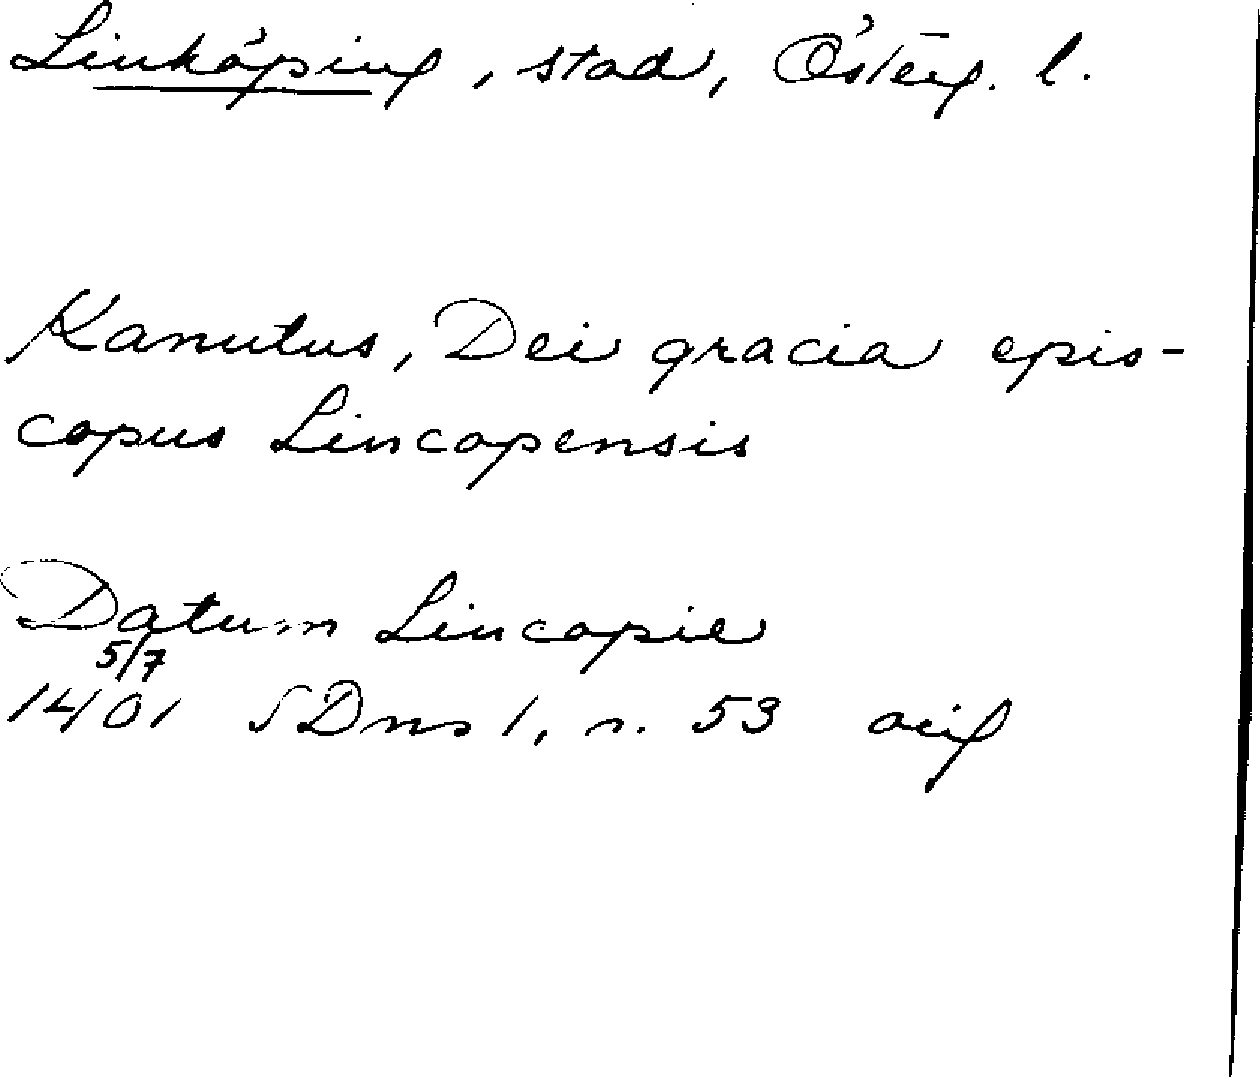 Linköping, stad, Österg. l.
Kanutus, Dei gracia epis-
copus Lincopensis
Datum Lincopie
5/7
1401 SDns 1, n. 53 orig